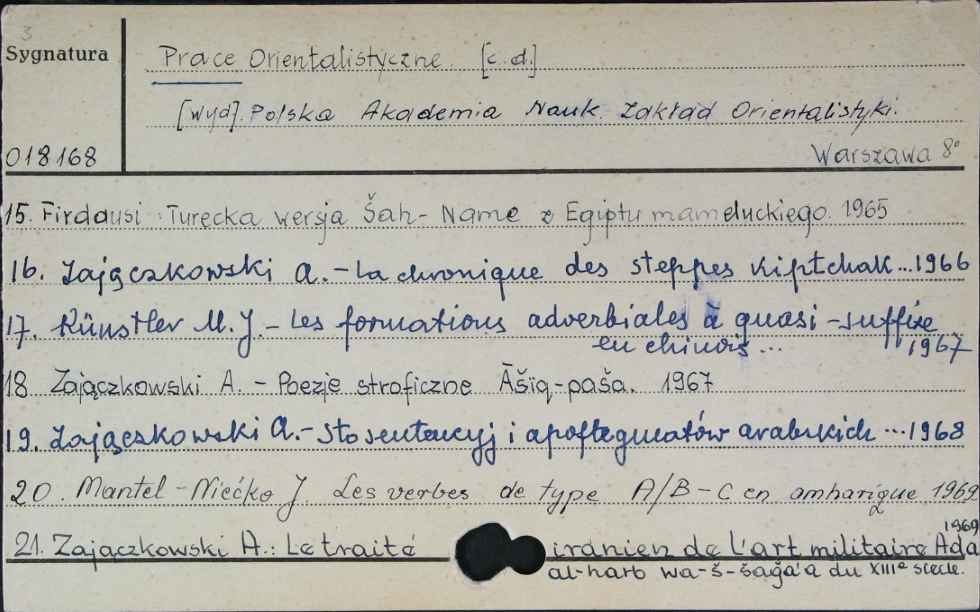 3
Sygnatura
Prace Orientalistyczne. [c.d.]
[wyd]. Polska Akademia Nauk. Zakład Orientalistyki.
018168
Warszawa 8°
15. Firdausi: Turecka wersja Šah-Name z Egiptu mameluckiego. 1965
16. Zajączkowski A. - La chronique des steppes Kiptchak... 1966
17. Künstler M.J. - Les formations adverbiales à quasi-suffixe
en chinois... 1967
18 Zajączkowski A. - Poezje stroficzne Āšïq-paša. 1967
19. Zajączkowski A. - Sto sentencyj i apoftegmatów arabskich... 1968
20. Mantel-Niećko J. Les verbes de type A/B-C en amharique 1969
21. Zajączkowski A.: Le traité iranien de l'art militaire Ada 1969
al-harb wa-š-šağā'a du XIIIe siecle.